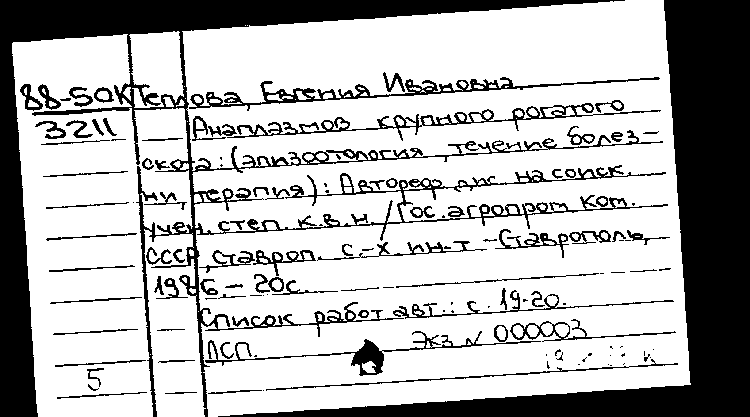 88-50К Теплова, Евгения Ивановна.
3211 Анаплазмоз крупного рогатого
скота: (эпизоотология, течение болез-
ни, терапия): Автореф. дис. на соиск.
учен. степ. к.в.н. / Гос. агропром. ком.
СССР, Ставроп. с.-х. ин-т. - Ставрополь,
1986. - 20с.
Список работ авт.: с. 19-20.
ДСП. Экз № 000003
5